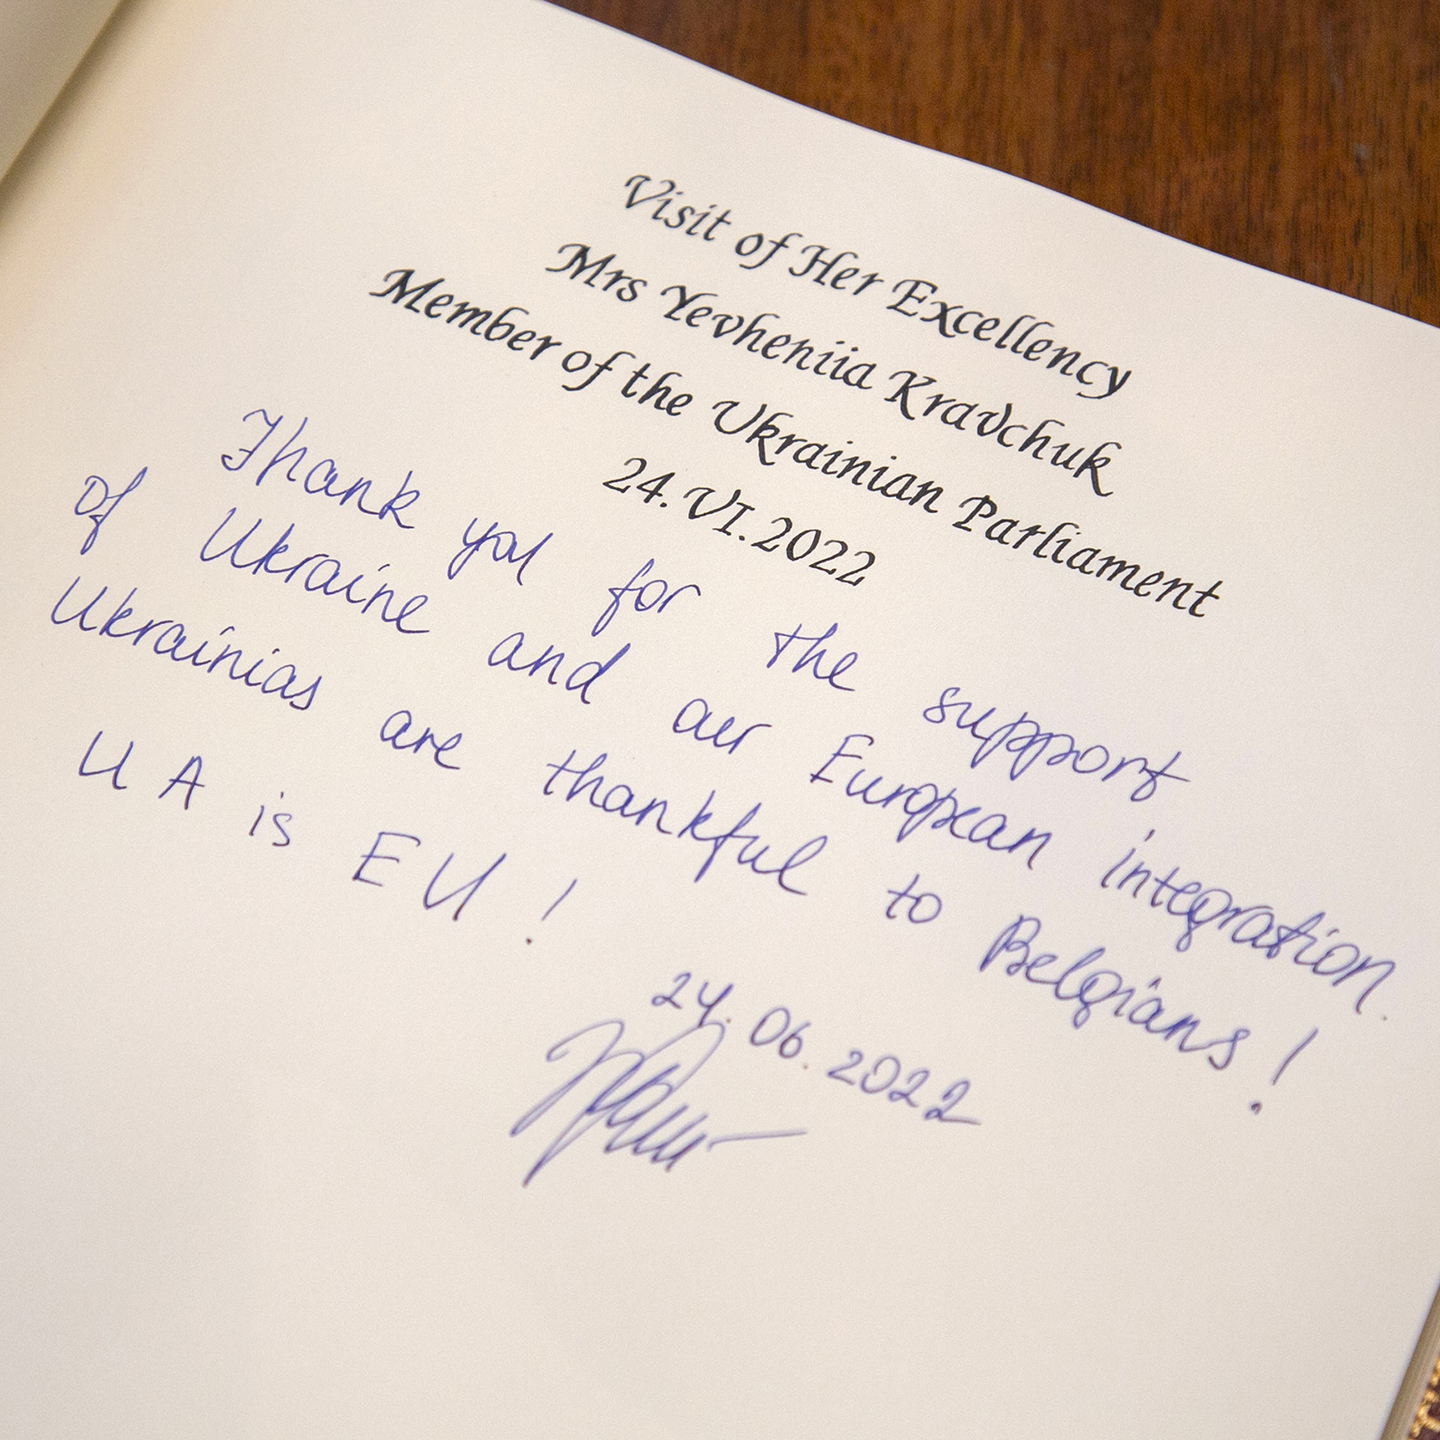 Visit of Her Excellency
Mrs Yevheniia Kravchuk
Member of the Ukrainian Parliament
24.VI.2022
Thank you for the support
of Ukraine and our European integration.
Ukrainias are thankful to Belgians!
UA is EU!
24.06.2022